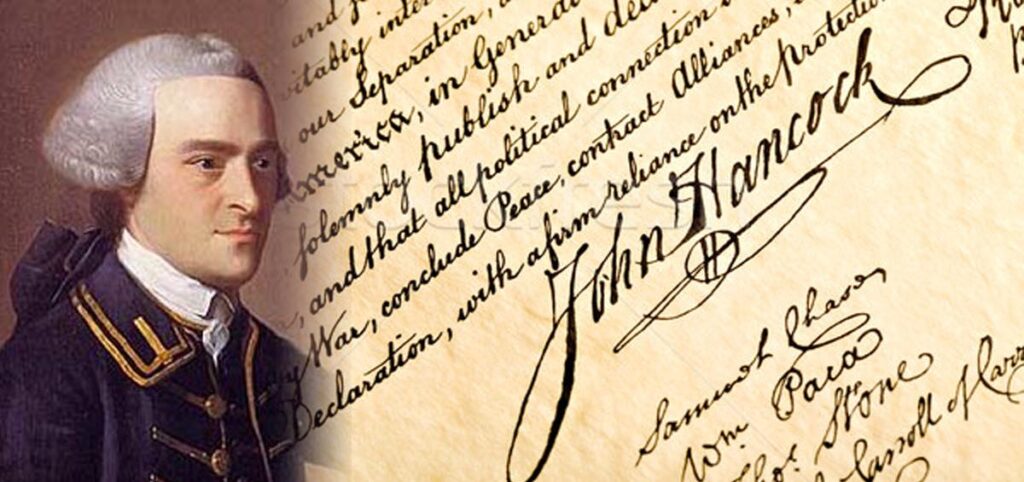 and f
vitably inter
our Separation, a
America, in General
solemnly publish and dec
, and that all political connection
War, conclude Peace, contract Alliances,
Declaration, with a firm reliance on the protectio
John Hancock
Samuel Chase
Wm Paca
Thos Stone
Carroll of Carr